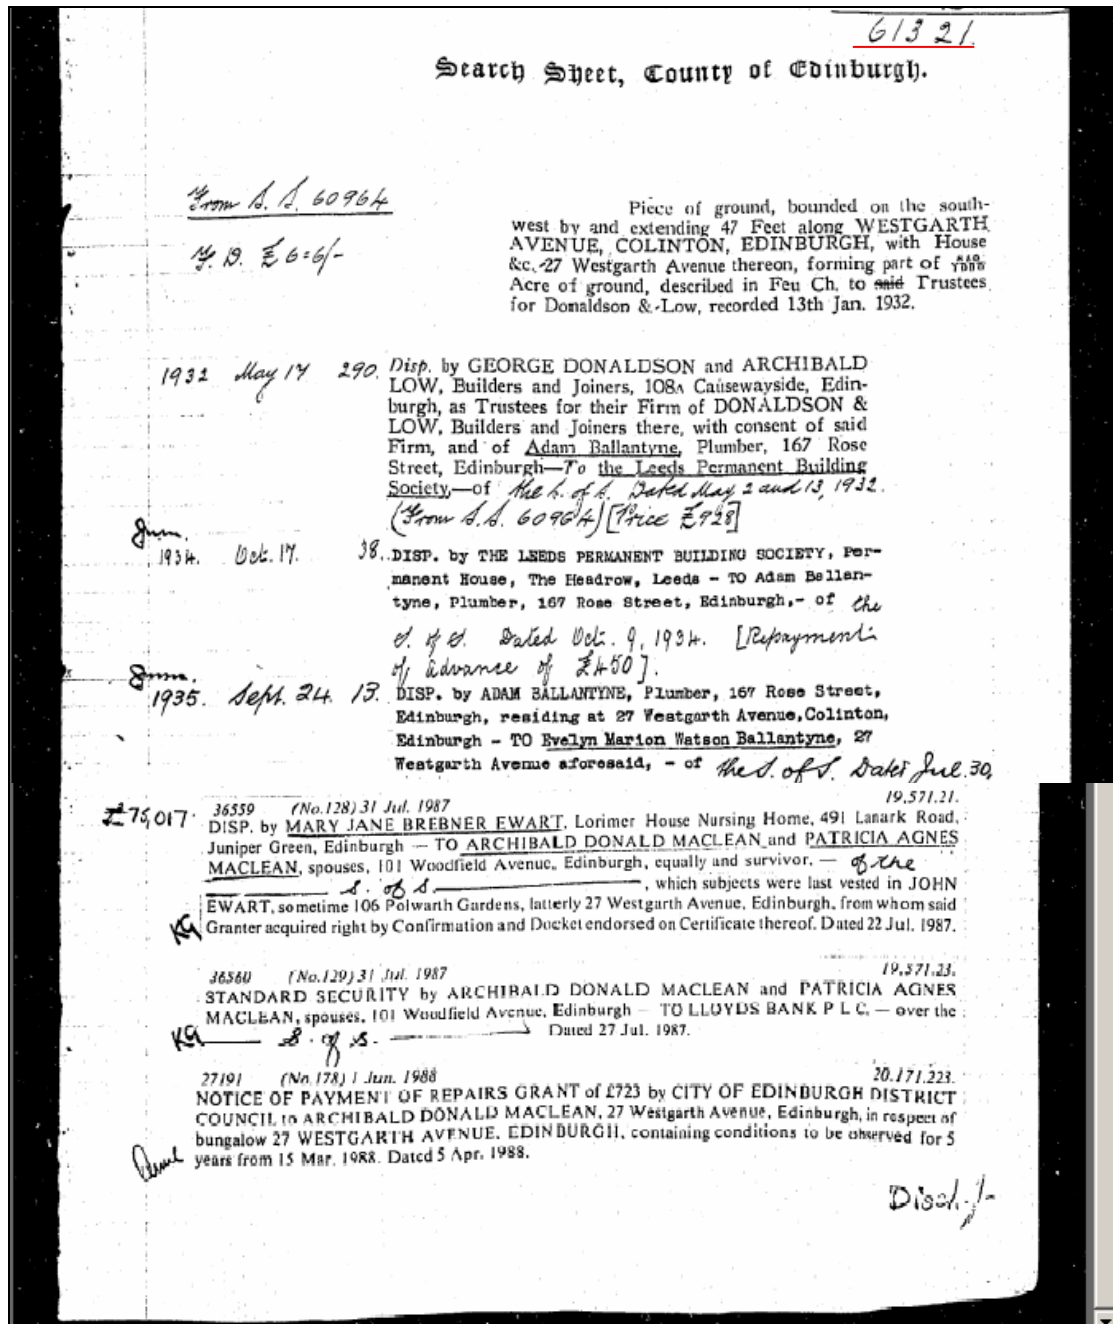 61321.
Search Sheet, County of Edinburgh.
From S. S. 60964
F. D. £6=6/-
Piece of ground, bounded on the south-
west by and extending 47 Feet along WESTGARTH
AVENUE, COLINTON, EDINBURGH, with House
&c. 27 Westgarth Avenue thereon, forming part of
Acre of ground, described in Feu Ch. to said Trustees
for Donaldson & Low, recorded 13th Jan. 1932.
1932 May 17 290. Disp. by GEORGE DONALDSON and ARCHIBALD
LOW, Builders and Joiners, 108A Causewayside, Edin-
burgh, as Trustees for their Firm of DONALDSON &
LOW, Builders and Joiners there, with consent of said
Firm, and of Adam Ballantyne, Plumber, 167 Rose
Street, Edinburgh—To the Leeds Permanent Building
Society,—of the S. of S. Dated May 2 and 13, 1932.
(From S.S. 60964) [Price £928]
1934. Oct. 17. 38. DISP. by THE LEEDS PERMANENT BUILDING SOCIETY, Per-
manent House, The Headrow, Leeds - TO Adam Ballan-
tyne, Plumber, 167 Rose Street, Edinburgh,- of the
S. of S. Dated Oct. 9, 1934. [Repayment
of advance of £450].
1935. Sept. 24. 13. DISP. by ADAM BALLANTYNE, Plumber, 167 Rose Street,
Edinburgh, residing at 27 Westgarth Avenue, Colinton,
Edinburgh - TO Evelyn Marion Watson Ballantyne, 27
Westgarth Avenue aforesaid, - of the S. of S. Dated Jul. 30,
£75,017. 36559 (No.128) 31 Jul. 1987 19.571.21.
DISP. by MARY JANE BREBNER EWART, Lorimer House Nursing Home, 491 Lanark Road,
Juniper Green, Edinburgh — TO ARCHIBALD DONALD MACLEAN and PATRICIA AGNES
MACLEAN, spouses, 101 Woodfield Avenue, Edinburgh, equally and survivor, — of the
S. of S. , which subjects were last vested in JOHN
EWART, sometime 106 Polwarth Gardens, latterly 27 Westgarth Avenue, Edinburgh, from whom said
KG Granter acquired right by Confirmation and Docket endorsed on Certificate thereof. Dated 22 Jul. 1987.
36560 (No.129) 31 Jul. 1987 19.571.23.
STANDARD SECURITY by ARCHIBALD DONALD MACLEAN and PATRICIA AGNES
MACLEAN, spouses, 101 Woodfield Avenue, Edinburgh — TO LLOYDS BANK P L C, — over the
KG S. of S. Dated 27 Jul. 1987.
27191 (No.178) 1 Jun. 1988 20.171.223.
NOTICE OF PAYMENT OF REPAIRS GRANT of £723 by CITY OF EDINBURGH DISTRICT
COUNCIL to ARCHIBALD DONALD MACLEAN, 27 Westgarth Avenue, Edinburgh, in respect of
bungalow 27 WESTGARTH AVENUE, EDINBURGH, containing conditions to be observed for 5
years from 15 Mar. 1988. Dated 5 Apr. 1988.